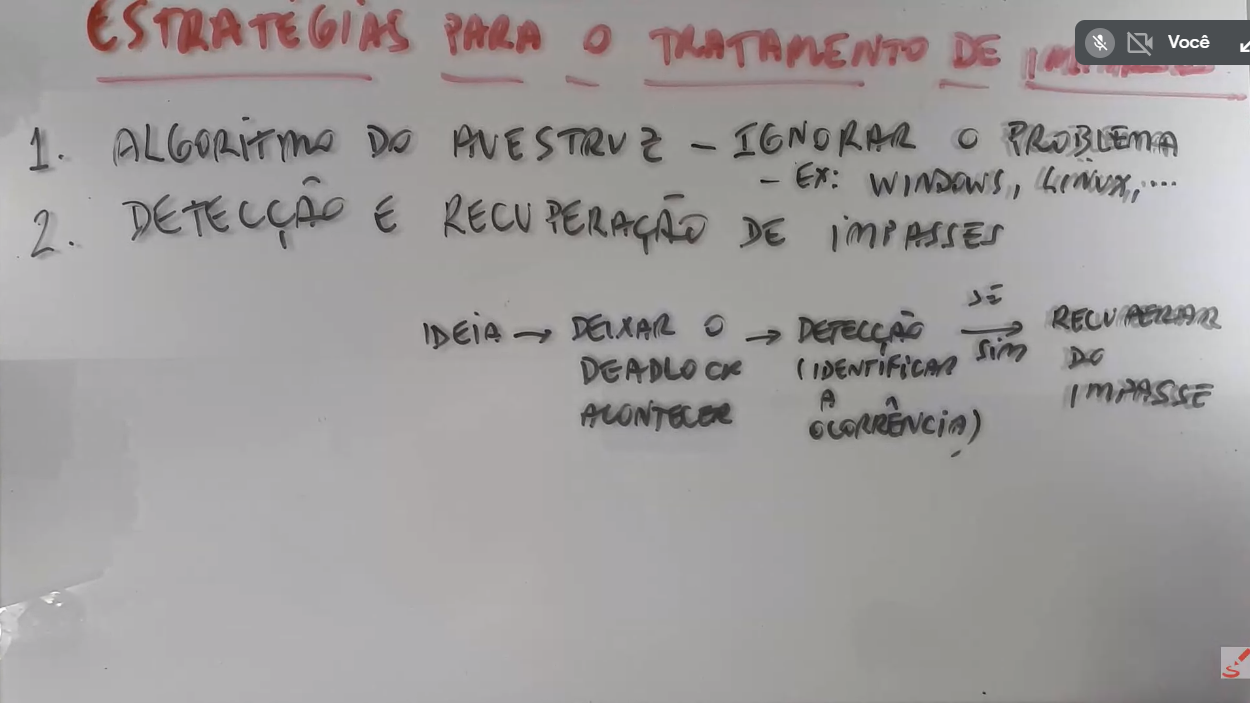 ESTRATÉGIAS PARA O TRATAMENTO DE
Você
1. ALGORITMO DO AVESTRUZ - IGNORAR O PROBLEMA
- EX: WINDOWS, LINUX, ....
2. DETECÇÃO E RECUPERAÇÃO DE IMPASSES
IDEIA → DEIXAR O DEADLOCK ACONTECER → DETECÇÃO (IDENTIFICAR A OCORRÊNCIA) SE SIM → RECUPERAR DO IMPASSE